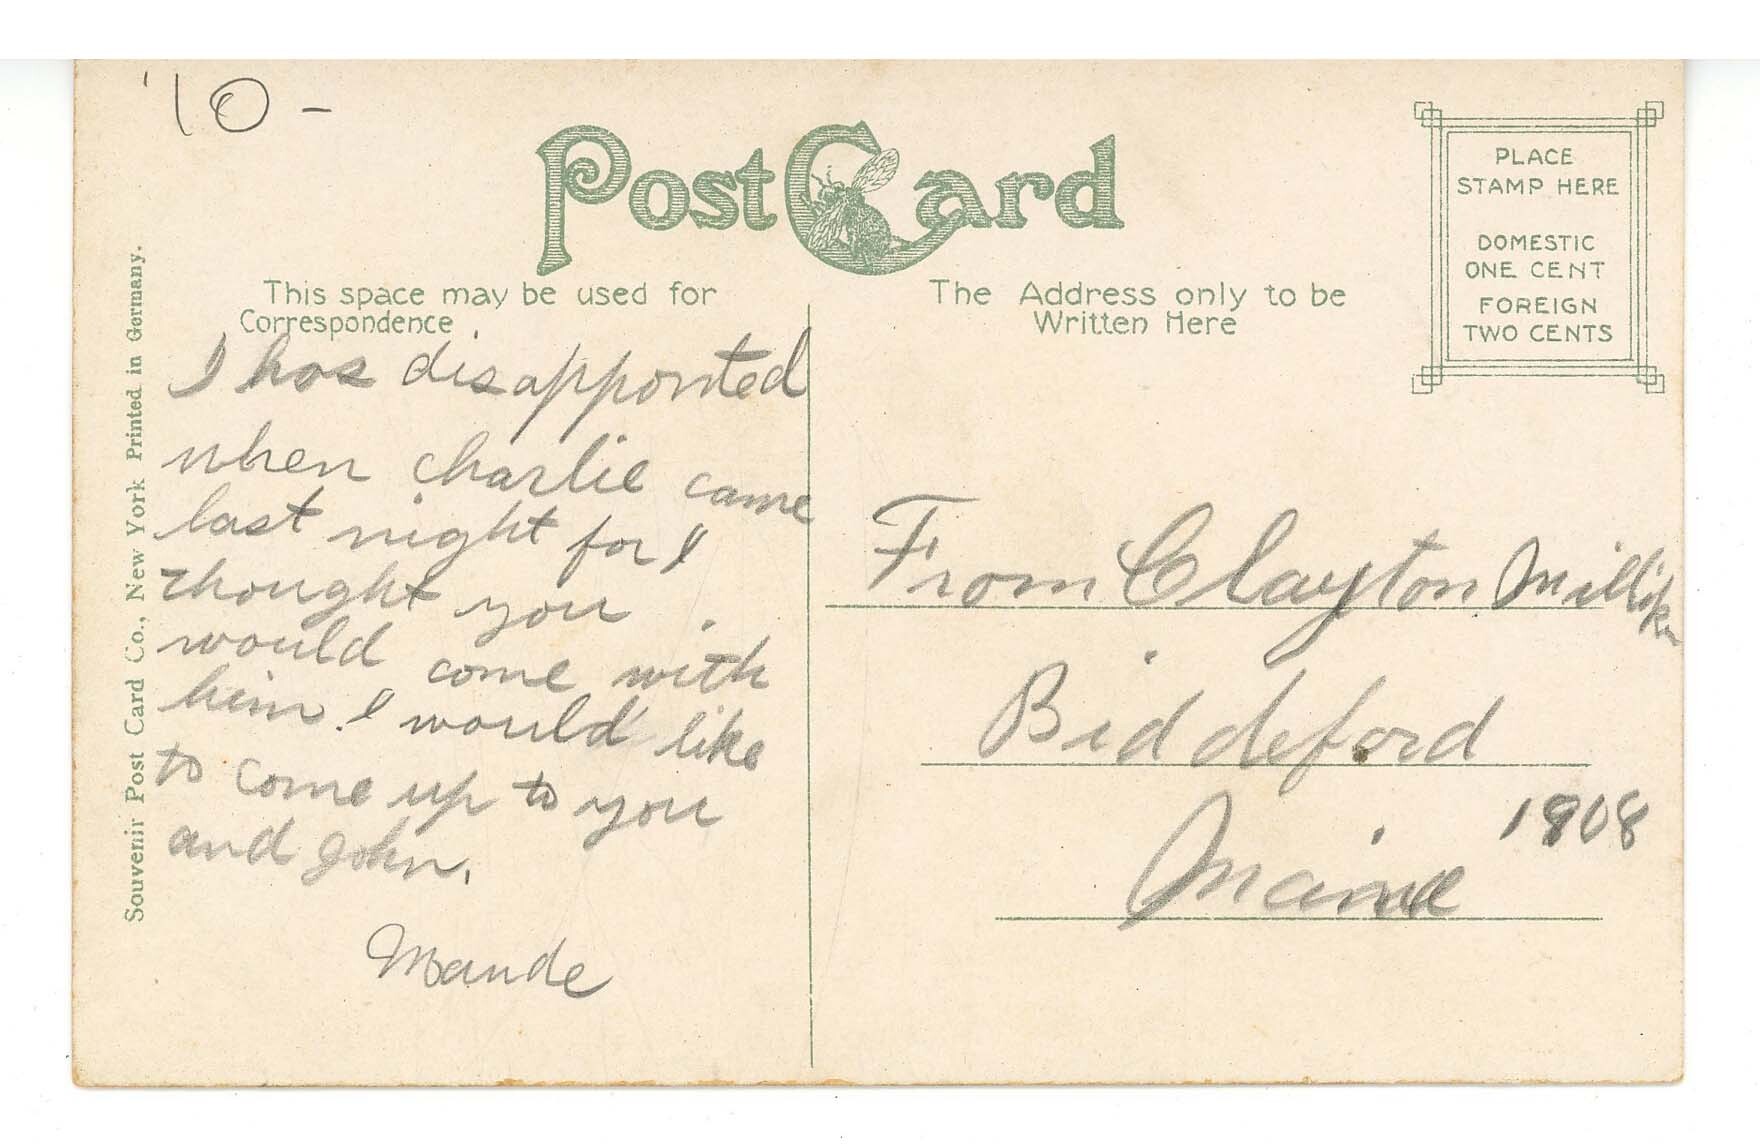 '10 -
Post Card
This space may be used for
Correspondence
The Address only to be
Written Here
PLACE
STAMP HERE
DOMESTIC
ONE CENT
FOREIGN
TWO CENTS
Souvenir Post Card Co., New York Printed in Germany.
I has disappointed
when Charlie came
last night for I
thought you
would come with
him. I would like
to come up to you
and John.
Maude
From Clayton Milliken
Biddeford
Maine
1908